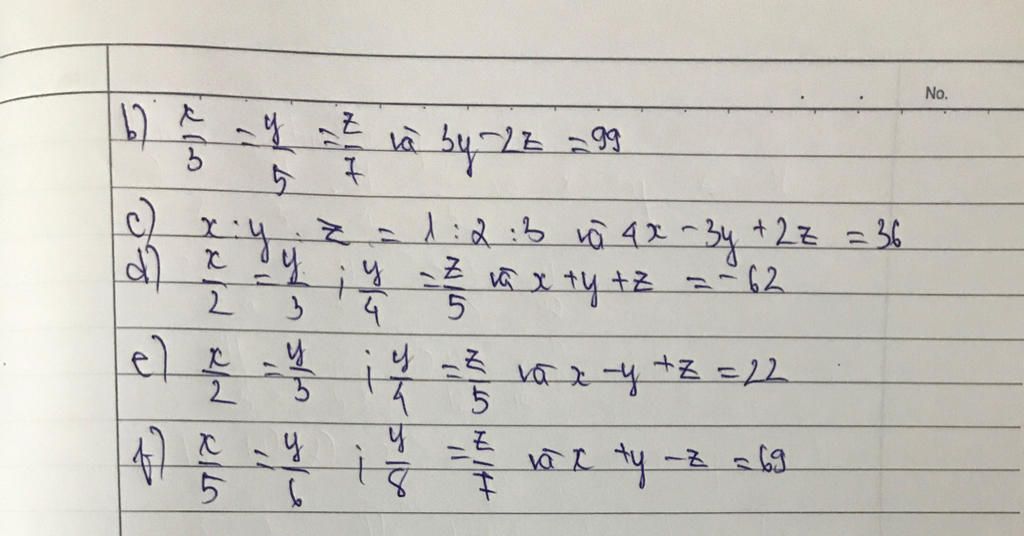 No.
b) x/3 = y/5 = z/7 và 3y - 2z = 99
c) x : y : z = 1 : 2 : 3 và 4x - 3y + 2z = 36
d) x/2 = y/3 ; y/4 = z/5 và x + y + z = -62
e) x/2 = y/3 ; y/4 = z/5 và x - y + z = 22
f) x/5 = y/6 ; y/8 = z/7 và x + y - z = 69